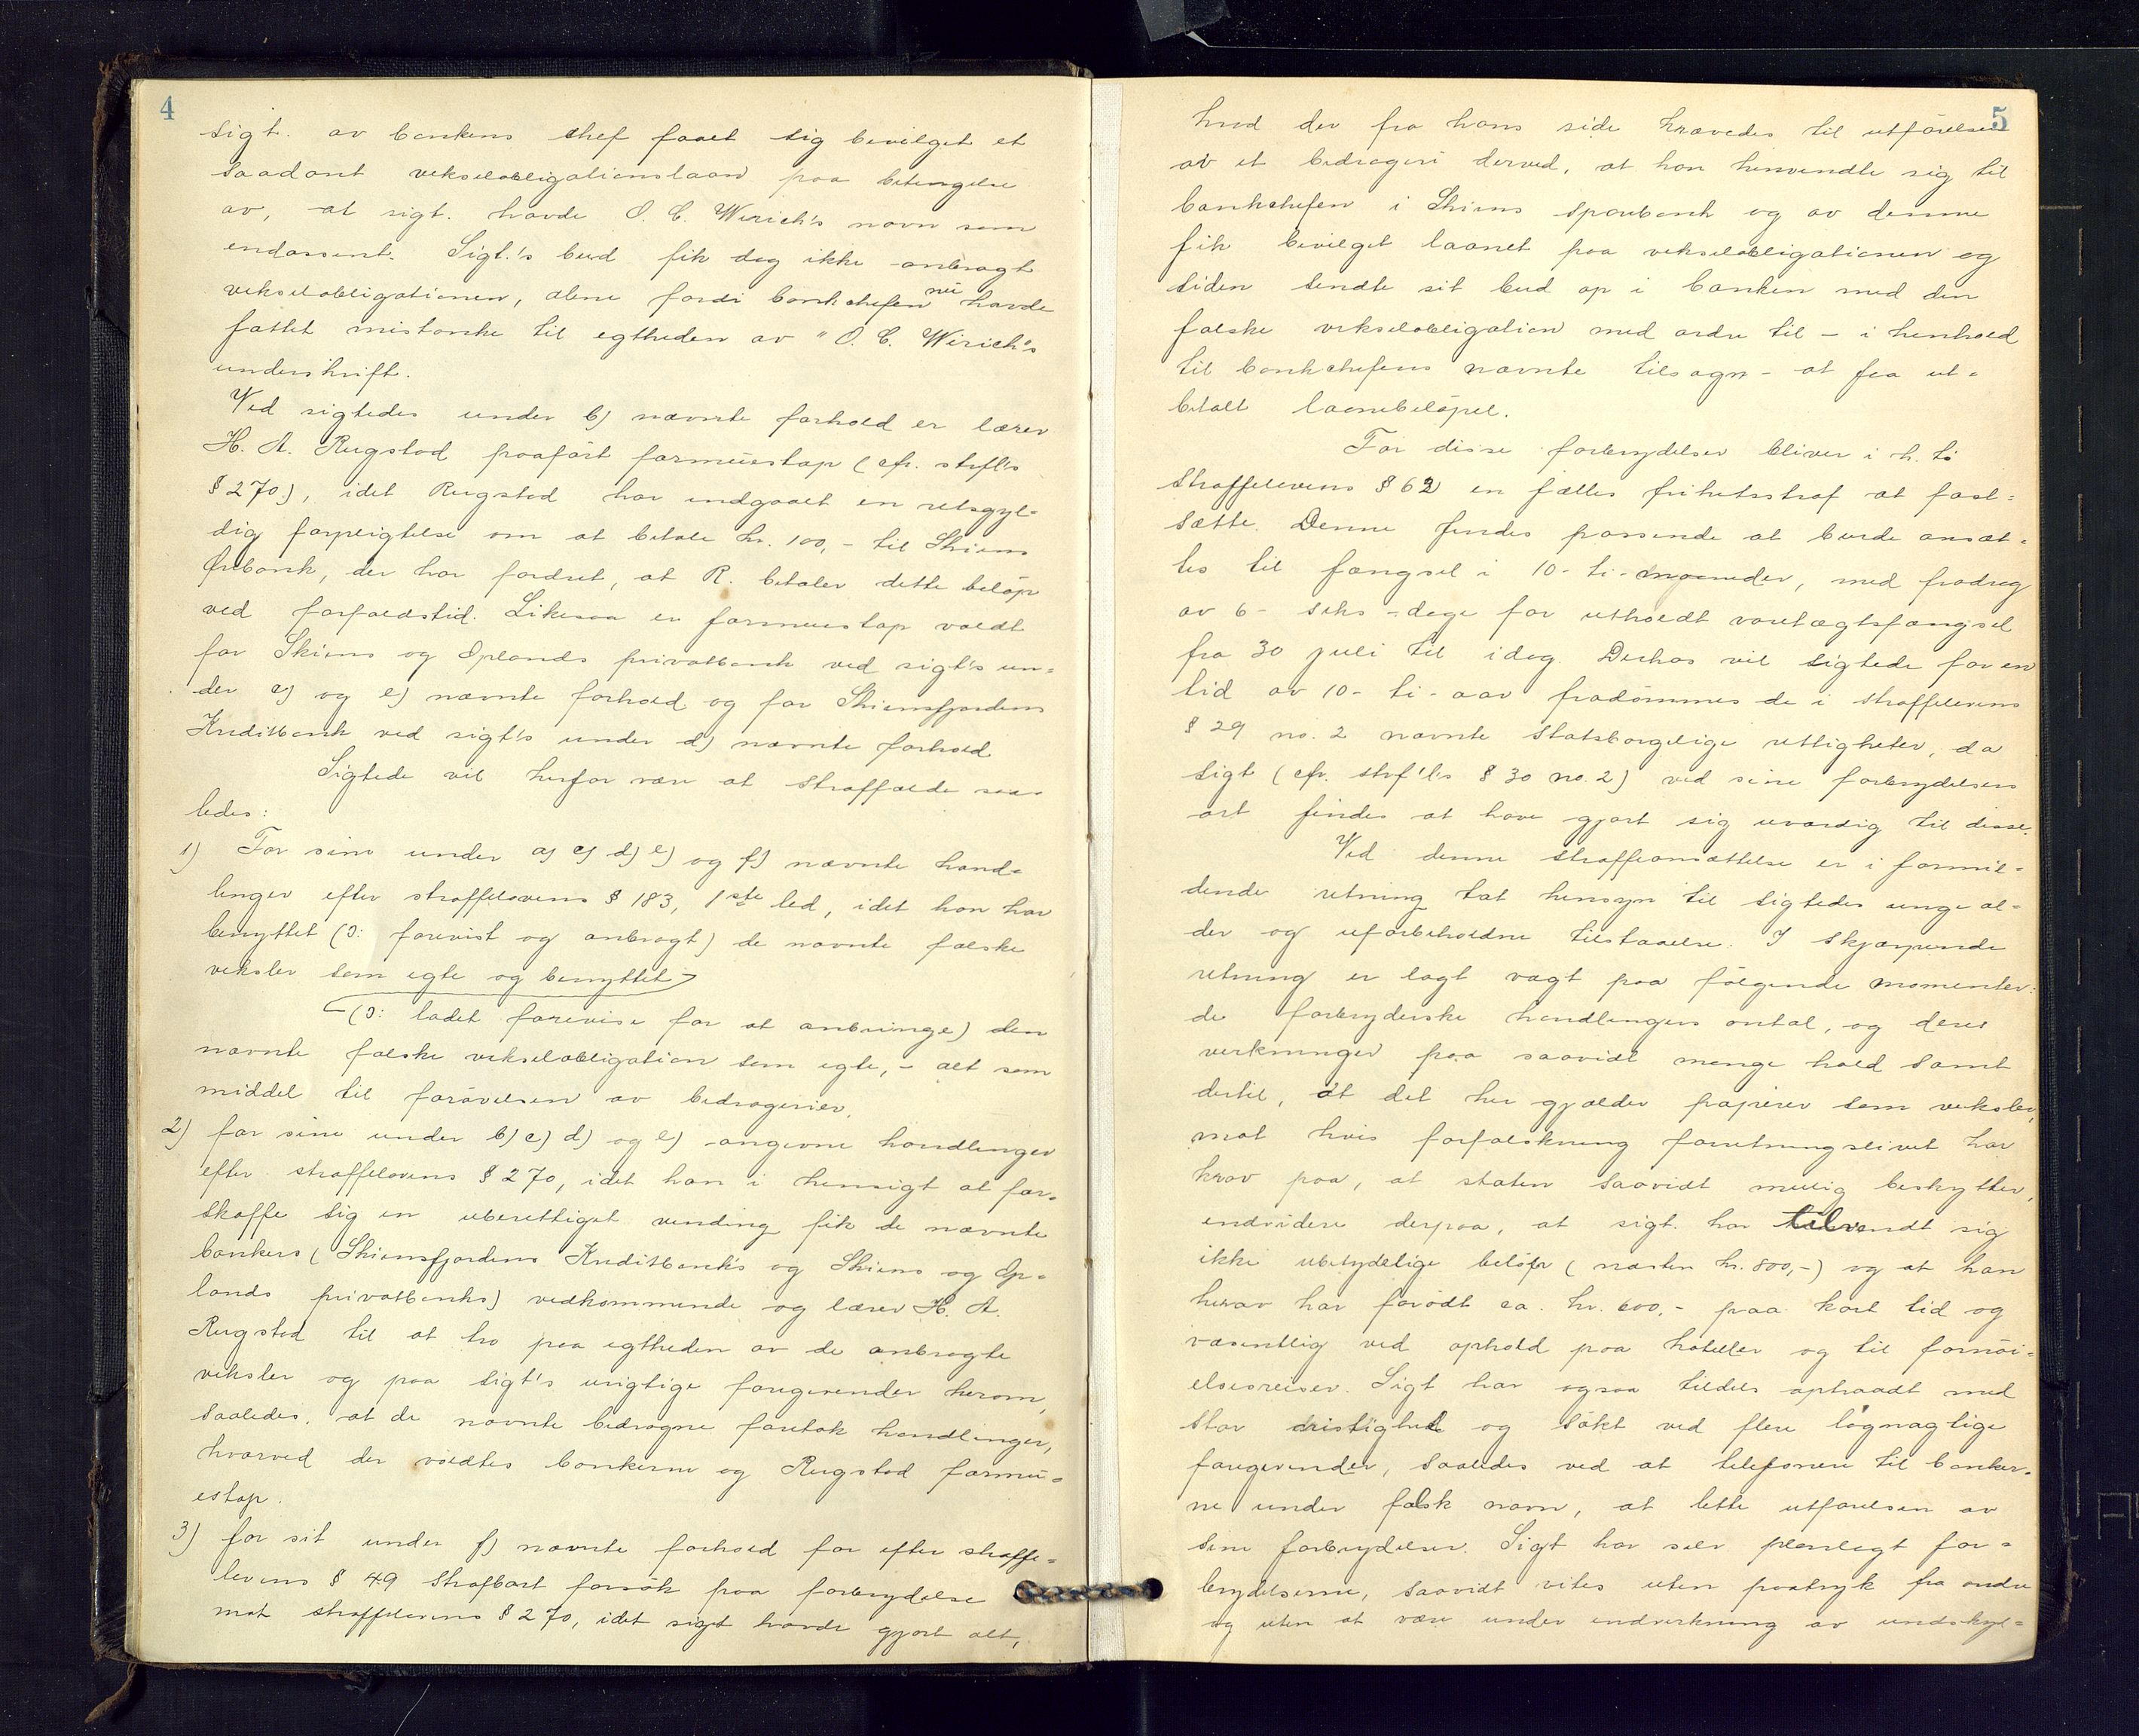 4
sigt. av bankens chef faaet sig bevilget et
saadant vekselobligationslaan paa betingelse
av, at sigt. havde O. C. Wirich's navn som
endossent. Sigt.'s bud fik dog ikke anbragt
vekselobligationen, alene fordi bankchefen nu havde
fattet mistanke til egtheden av "O. C. Wirich's
underskrift.
Ved sigtedes under b) nævnte forhold er lærer
H. A. Rugstad paaført formuestap (cfr. strfl's
§ 270), idet Rugstad har indgaaet en retsgyl=
dig forpligtelse om at betale kr. 100,- til Skiens
Ørebank, der har fordret, at R. betaler dette beløp
ved forfaldstid. Likesaa er formuestap voldt
for Skiens og Oplands privatbank ved sigt's un=
der c) og e) nævnte forhold og for Skiensfjordens
Kreditbank ved sigt's under d) nævnte forhold
Sigtede vil herfor være at straffælde saa=
ledes:
1) For sine under a) c) d) e) og f) nævnte hand=
linger efter straffelovens § 183, 1ste led, idet han har
benyttet (ɔ: forevist og anbragt) de nævnte falske
veksler som egte og benyttet
(ɔ: ladet forevise for at anbringe) den
nævnte falske vekselobligation som egte, - alt som
middel til forøvelsen av bedragerier.
2) for sine under b) c) d) og e) angivne handlinger
efter straffelovens § 270, idet han i hensigt at for=
skaffe sig en uberettiget vinding fik de nævnte
bankers (Skiensfjordens Kreditbank's og Skiens og Op=
lands privatbanks) vedkommende og lærer H. A.
Rugstad til at tro paa egtheden av de anbragte
veksler og paa sigt's urigtige foregivender herom,
saaledes, at de nævnte bedragne foretok handlinger,
hvorved der voldtes bankerne og Rugstad formu=
estap.
3) for sit under f) nævnte forhold for efter straffe=
lovens § 49 strafbart forsøk paa forbrydelse
mot straffelovens § 270, idet sigt havde gjort alt,
5
hvad der fra hans side krævedes til utførelse
av et bedrageri derved, at han henvendte sig til
bankchefen i Skiens sparebank og av denne
fik bevilget laanet paa vekselobligationen og
siden sendte sit bud op i banken med den
falske vekselobligation med ordre til - i henhold
til bankchefens nævnte tilsagn - at faa ut=
betalt laanebeløpet.
For disse forbrydelser bliver i h. t.
straffelovens § 62 en fælles frihetsstraf at fast=
sætte. Denne findes passende at burde ansæt=
tes til fængsel i 10 - ti - maaneder, med fradrag
av 6 - seks - dage for utholdt varetægtsfængsel
fra 30 juli til idag. Derhos vil sigtede for en
tid av 10 - ti - aar fradømmes de i straffelovens
§ 29 no. 2 nævnte statsborgerlige rettigheter, da
sigt (cfr. strf'l's § 30 no. 2) ved sine forbrydelsers
art findes at have gjort sig uværdig til disse.
Ved denne straffeansættelse er i formil=
dende retning tat hensyn til sigtedes unge al=
der og uforbeholdne tilstaaelse. I skjærpende
retning er lagt vægt paa følgende momenter:
de forbryderske handlingers antal, og deres
virkninger paa saavidt mange hold samt
dertil, at det her gjælder papirer som veksler,
mot hvis forfalskning forretningslivet har
krav paa, at staten saavidt mulig beskytter,
endvidere derpaa, at sigt. har tilvendt sig
ikke ubetydelige beløp (næsten kr. 800,-) og at han
herav har forødt ca. kr. 600,- paa kort tid og
væsentlig ved ophold paa hoteller og til fornøi=
elsesreiser. Sigt har ogsaa tildels optraadt med
stor dristighed og søkt ved flere løgnagtige
foregivender, saaledes ved at telefonere til banker=
ne under falsk navn, at lette utførelsen av
sine forbrydelser. Sigt har selv planlagt for=
brydelserne, saavidt vites uten paatryk fra andre
og uten at være under indvirkning av undskyl=